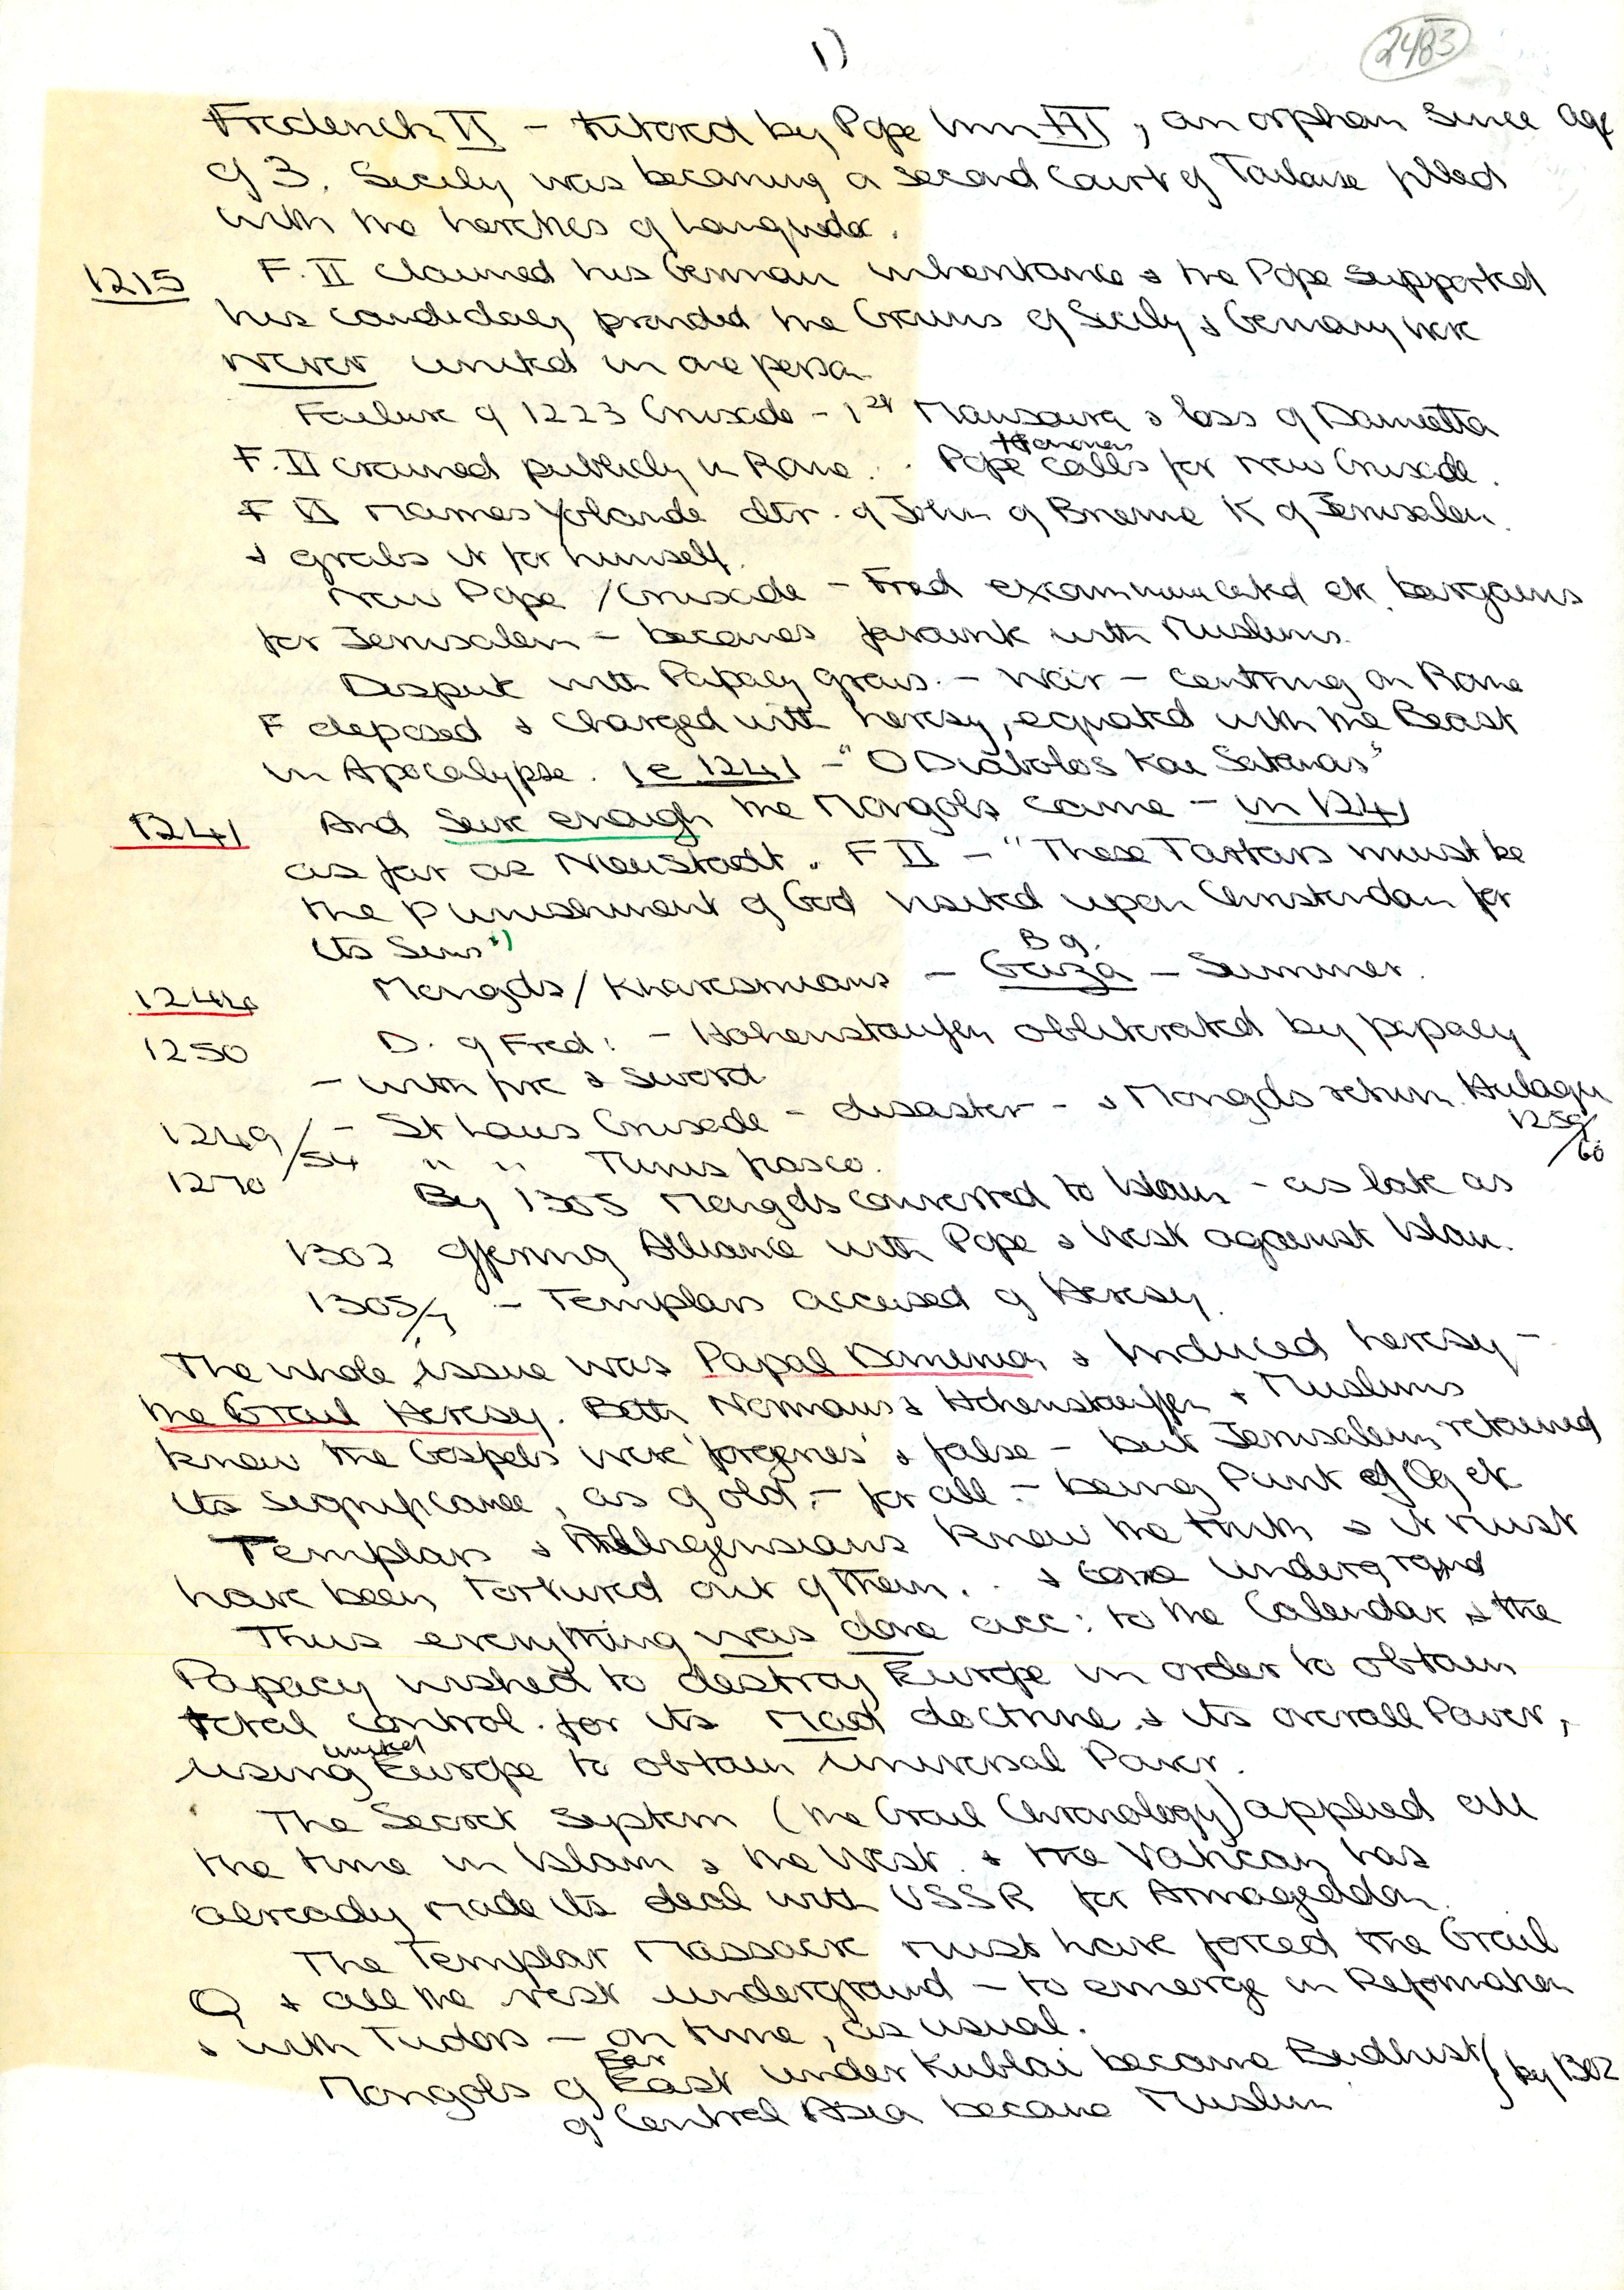 1)
2483
Frederick II - tutored by Pope Inn III, an orphan since age
of 3. Sicily was becoming a second Court of Toulouse filled
with the heretics of Languedoc.
1215 F. II claimed his German inheritance & the Pope supported
his candidacy provided the Crowns of Sicily & Germany were
never united in one person
Failure of 1223 Crusade - 1st Mansoura & loss of Damietta
F. II crowned publicly in Rome. Pope Honorius calls for new Crusade.
F II marries Yolande dtr. of John of Brienne K of Jerusalem.
& grabs it for himself.
New Pope / Crusade - Fred excommunicated etc. bargains
for Jerusalem - becomes favourite with Muslims.
Dispute with Papacy grows. - War - centring on Rome
F deposed & charged with heresy, equated with the Beast
in Apocalypse. ie 1241 - "O Diabolos Kai Satanas"
1241 And sure enough the Mongols came - in 1241
as far as Neustadt. F II - "These Tartars must be
the punishment of God visited upon Christendom for
its Sins")
1244 Mongols/Kharesmians - B of. Gaza - Summer.
1250 D. of Fred: - Hohenstaufen obliterated by papacy
- with fire & sword.
1249/54 - St Louis Crusade - disaster - & Mongols return. Hulagu 1259/60
1270 " " Tunis fiasco.
By 1305 Mongols converted to Islam - as late as
1302 offering Alliance with Pope & West against Islam.
1305/7 - Templars accused of Heresy.
The whole issue was Papal Dominion & Induced heresy -
the Grail Heresy. Both Normans & Hohenstauffen & Muslims
knew the Gospels were 'forgeries' & false - but Jerusalem retained
its significance, as of old, - for all - being Punt of Og etc
Templars & Albigensians knew the truth & it must
have been tortured out of them. . & gone underground
Thus everything was done acc: to the Calendar & the
Papacy wished to destroy Europe in order to obtain
total control. for its Mad doctrine. & its overall Power,
using united Europe to obtain universal Power.
The Secret System (the Grail Chronology) applied all
the time in Islam & the West. & the Vatican has
already made its deal with USSR for Armageddon.
The Templar Massacre must have forced the Grail
Q & all the rest underground - to emerge in Reformation
& with Tudors - on time, as usual.
Mongols of Far East under Kublai became Budhist } by 1302
of Central Asia became Muslim